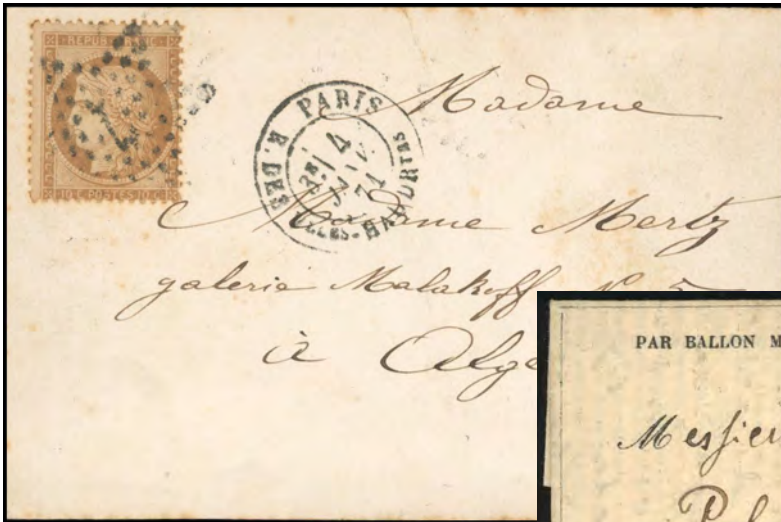 REPUB FRANC
10 C. POSTES 10 C.
PARIS
4
71
R. DES
HAUDRTES
Madame
Madame Mertz
galerie Malakoff N° 5
à Alge
PAR BALLON M
Messieu